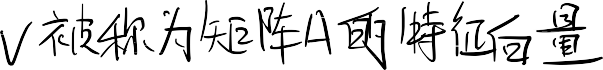 V被称为矩阵A的特征向量